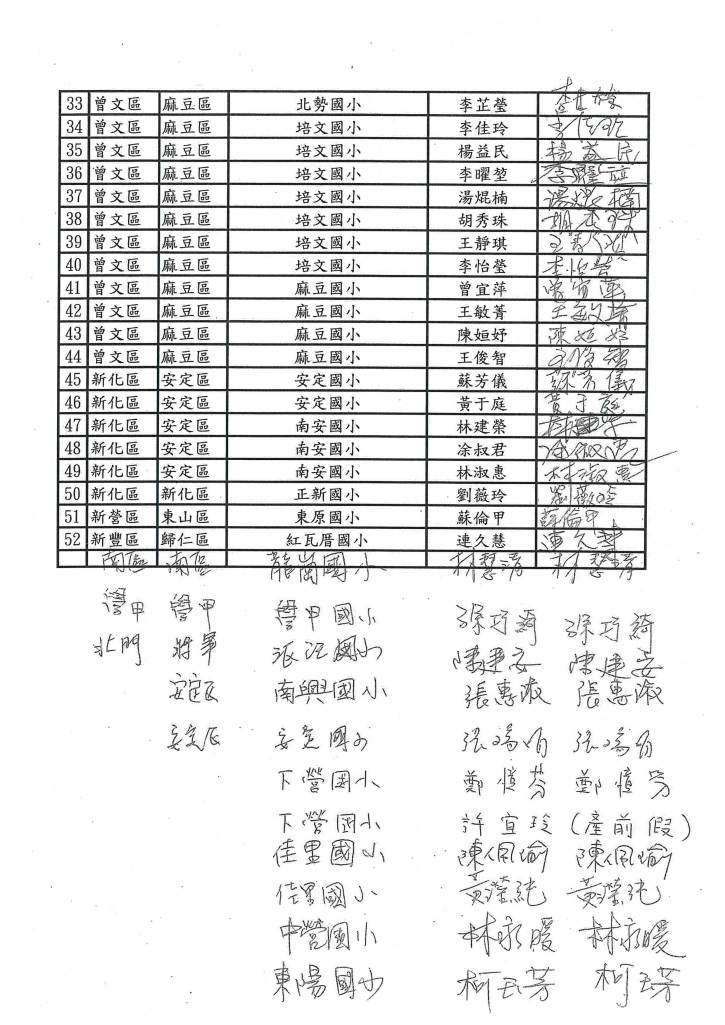 33 曾文區 麻豆區 北勢國小 李芷瑩
34 曾文區 麻豆區 培文國小 李佳玲 李佳玲
35 曾文區 麻豆區 培文國小 楊益民 楊益民
36 曾文區 麻豆區 培文國小 李曜堃
37 曾文區 麻豆區 培文國小 湯焜楠 湯焜楠
38 曾文區 麻豆區 培文國小 胡秀珠 胡秀珠
39 曾文區 麻豆區 培文國小 王靜琪
40 曾文區 麻豆區 培文國小 李怡瑩 李怡瑩
41 曾文區 麻豆區 麻豆國小 曾宜萍 曾宜萍
42 曾文區 麻豆區 麻豆國小 王敏菁 王敏菁
43 曾文區 麻豆區 麻豆國小 陳姮妤 陳姮妤
44 曾文區 麻豆區 麻豆國小 王俊智 王俊智
45 新化區 安定區 安定國小 蘇芳儀 蘇芳儀
46 新化區 安定區 安定國小 黃于庭 黃于庭
47 新化區 安定區 南安國小 林建榮
48 新化區 安定區 南安國小 涂叔君
49 新化區 安定區 南安國小 林淑惠 林淑惠
50 新化區 新化區 正新國小 劉薇玲 劉薇玲
51 新營區 東山區 東原國小 蘇倫甲 蘇倫甲
52 新豐區 歸仁區 紅瓦厝國小 連久慧 連久慧
南區 南區 龍崗國小 林慧清 林慧清
學甲 學甲 學甲國小 徐巧綺 徐巧綺
北門 將軍 國小 陳建安 陳建安
安定區 南興國小 張惠淑 張惠淑
安定區 安定國小 張瑞娟 張瑞娟
下營國小 鄭愷芬 鄭愷芬
下營國小 許宜玲 (產前假)
佳里國小 陳佩瑜 陳佩瑜
佳里國小 黃瀠純 黃瀠純
中營國小 林永暖 林永暖
東陽國小 柯玉芳 柯玉芳